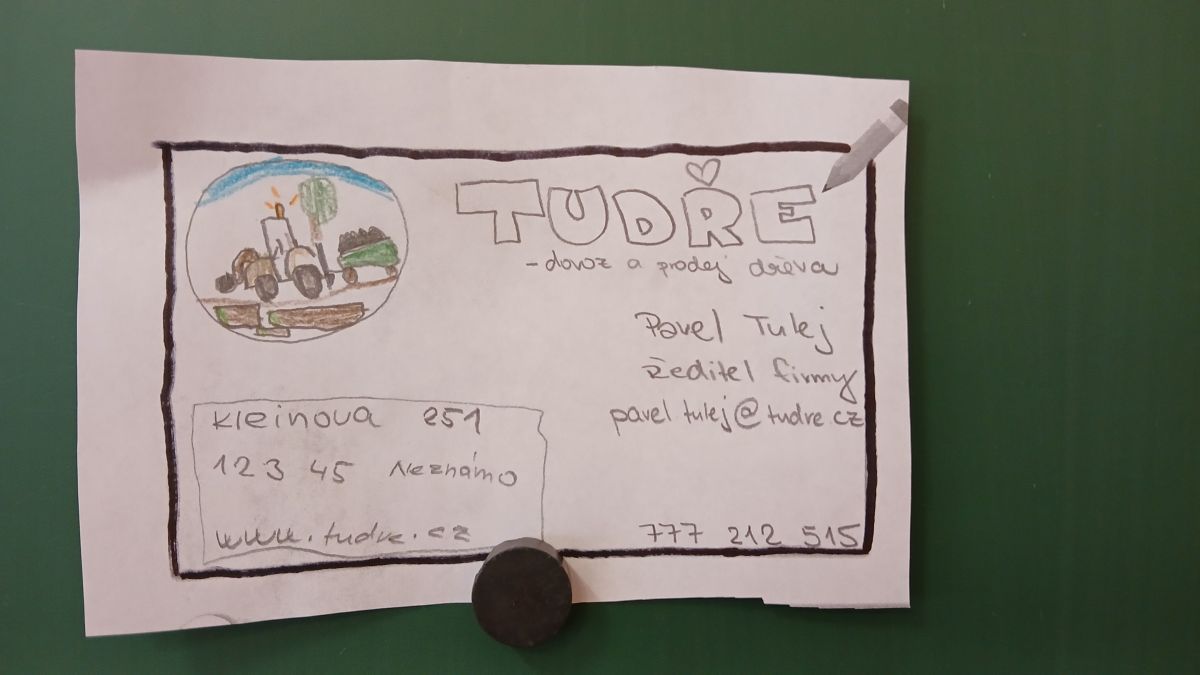 TUDŘE
- dovoz a prodej dřeva
Pavel Tulej
ředitel firmy
pavel.tulej@tudre.cz
Kleinova 251
123 45 Neznámo
www.tudre.cz
777 212 515